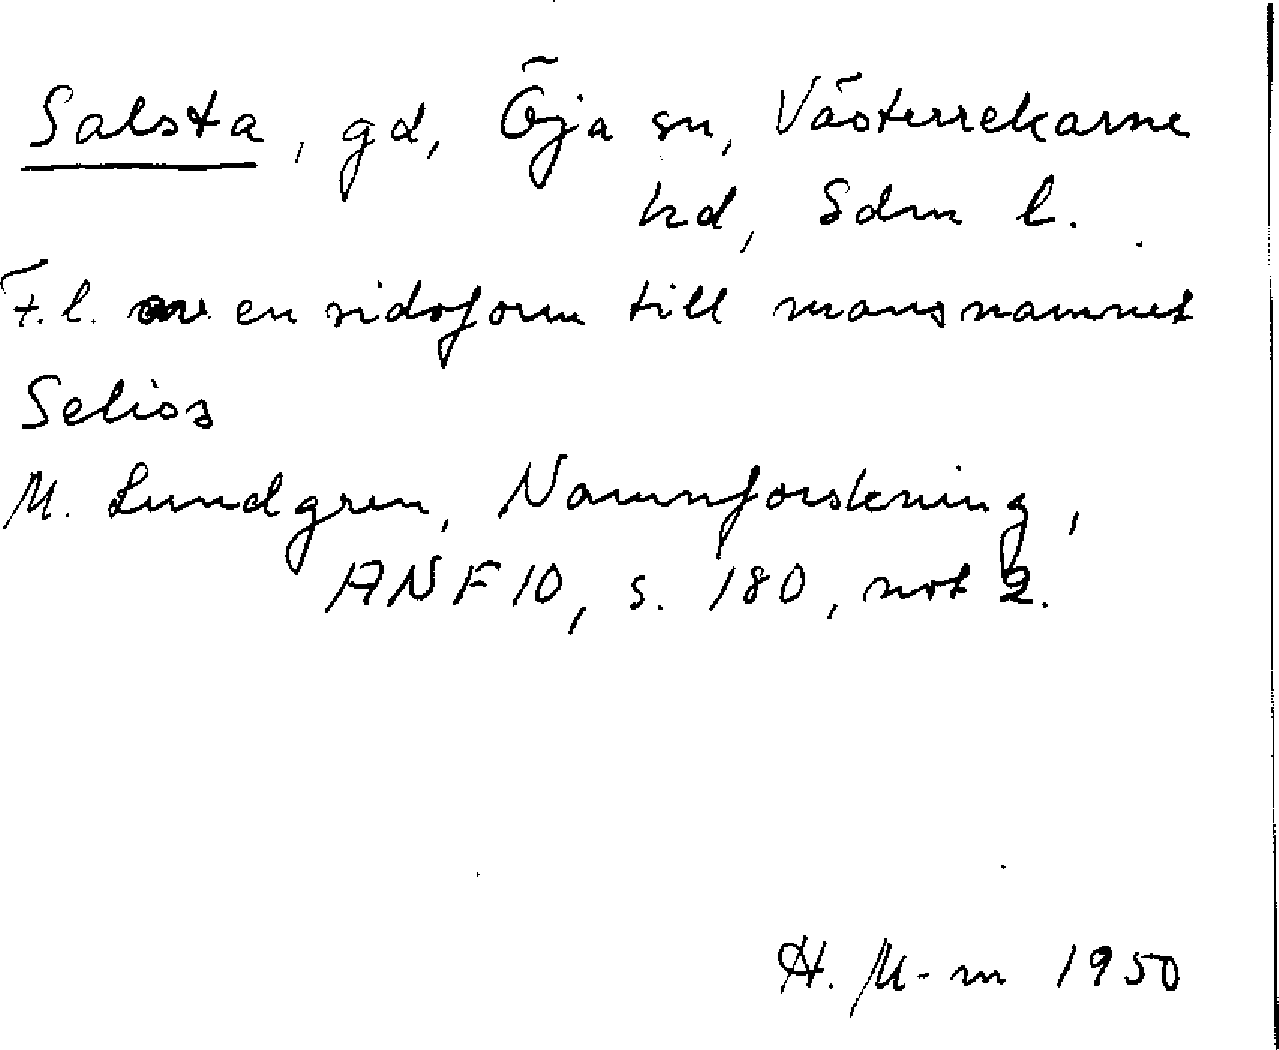 Salsta, gd, Öja sn, Västerrekarne
hd, Sdm l.
F.l. av en sidoform till mansnamnet
Selios
M. Lundgren, Namnforskning,
ANF 10, s. 180, not 2.
H. M-m 1950